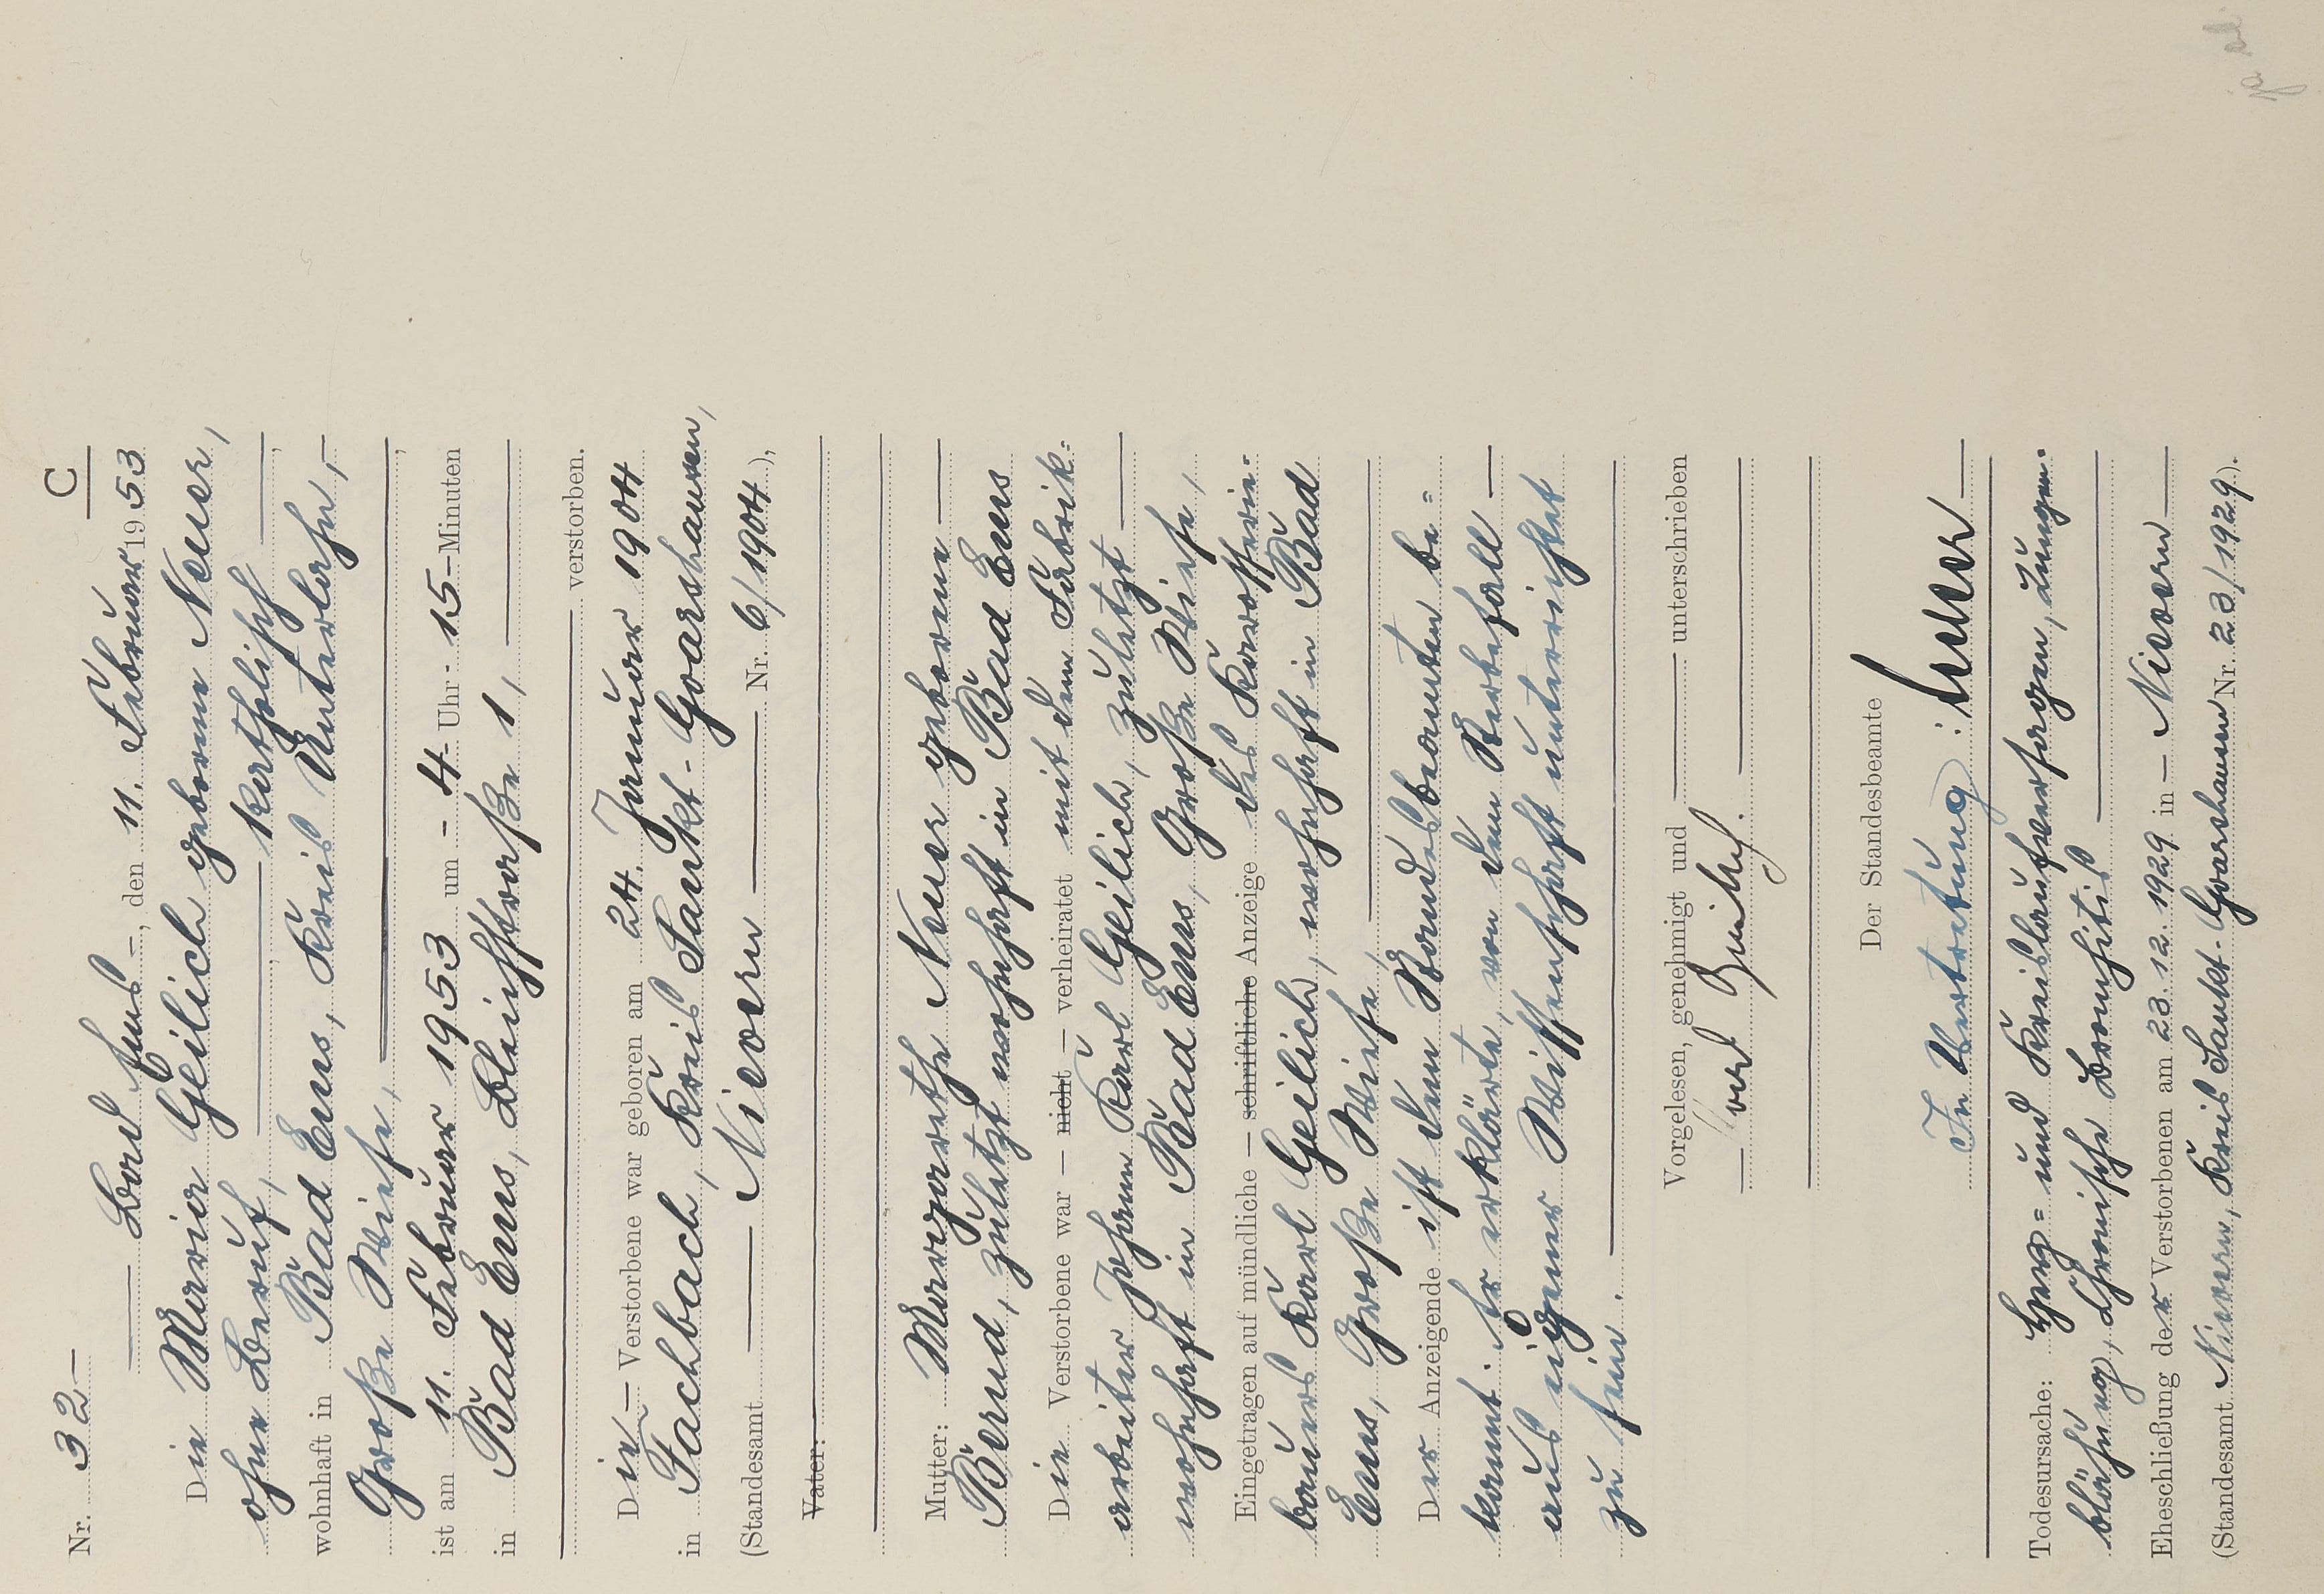 C
Nr. 32
Bad Ems, den 11. Februar 1953
Die Maria Geilich geborene Neuer,
ohne Beruf, katholisch,
wohnhaft in Bad Ems, Kreis Unterlahn,
Große Wiese,
ist am 11. Februar 1953 um 4 Uhr 15 Minuten
in Bad Ems, Bleichstraße 1,
verstorben.
Die Verstorbene war geboren am 24. Januar 1904
in Fachbach, Kreis Sankt-Goarshausen,
(Standesamt Nievern Nr. 6/1904),
Vater:
Mutter: Margarethe Neuer geborene
Bernd, zuletzt wohnhaft in Bad Ems
Die Verstorbene war — nicht — verheiratet mit dem Fabrik=
arbeiter Johann Karl Geilich, zuletzt
wohnhaft in Bad Ems, Große Wiese,
Eingetragen auf mündliche — schriftliche Anzeige des Karosserie=
bauers Karl Geilich, wohnhaft in Bad
Ems, Große Wiese,
Der Anzeigende ist dem Standesbeamten be=
kannt. Er erklärte, von dem Sterbefall
aus eigener Wissenschaft unterrichtet
zu sein.
Vorgelesen, genehmigt und unterschrieben
Der Standesbeamte
In Vertretung:
Todesursache: Herz= und Kreislaufversagen, Lungen=
blähung, Chronische Bronchitis
Eheschließung der Verstorbenen am 23.12.1929 in Nievern
(Standesamt Nievern, Kreis Sankt-Goarshausen Nr. 23/1929).